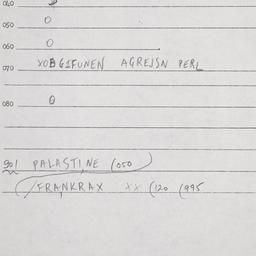 040
050 0
060 0
070 YOBG1FUNEN AGREJSN PERL
080 0
90/ PALASTINE (050
FRANKRAX XX (120 (995